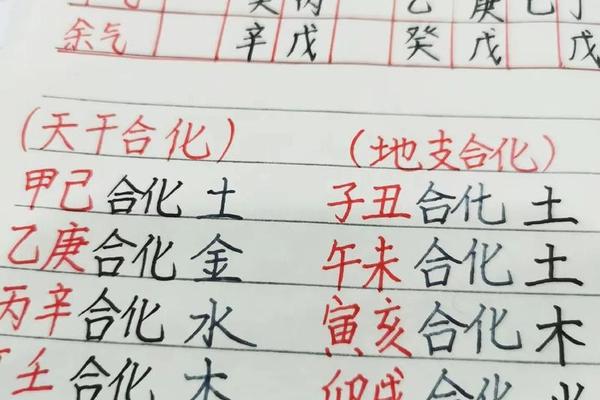 癸 丙 乙 庚 己 丁
余气 辛 戊 癸 戊 戊
(天干合化) (地支合化)
甲己合化 土 子丑合化 土
乙庚合化 金 午未合化 土
丙辛合化 水 寅亥合化 木
壬合化 木 卯戌合化 火